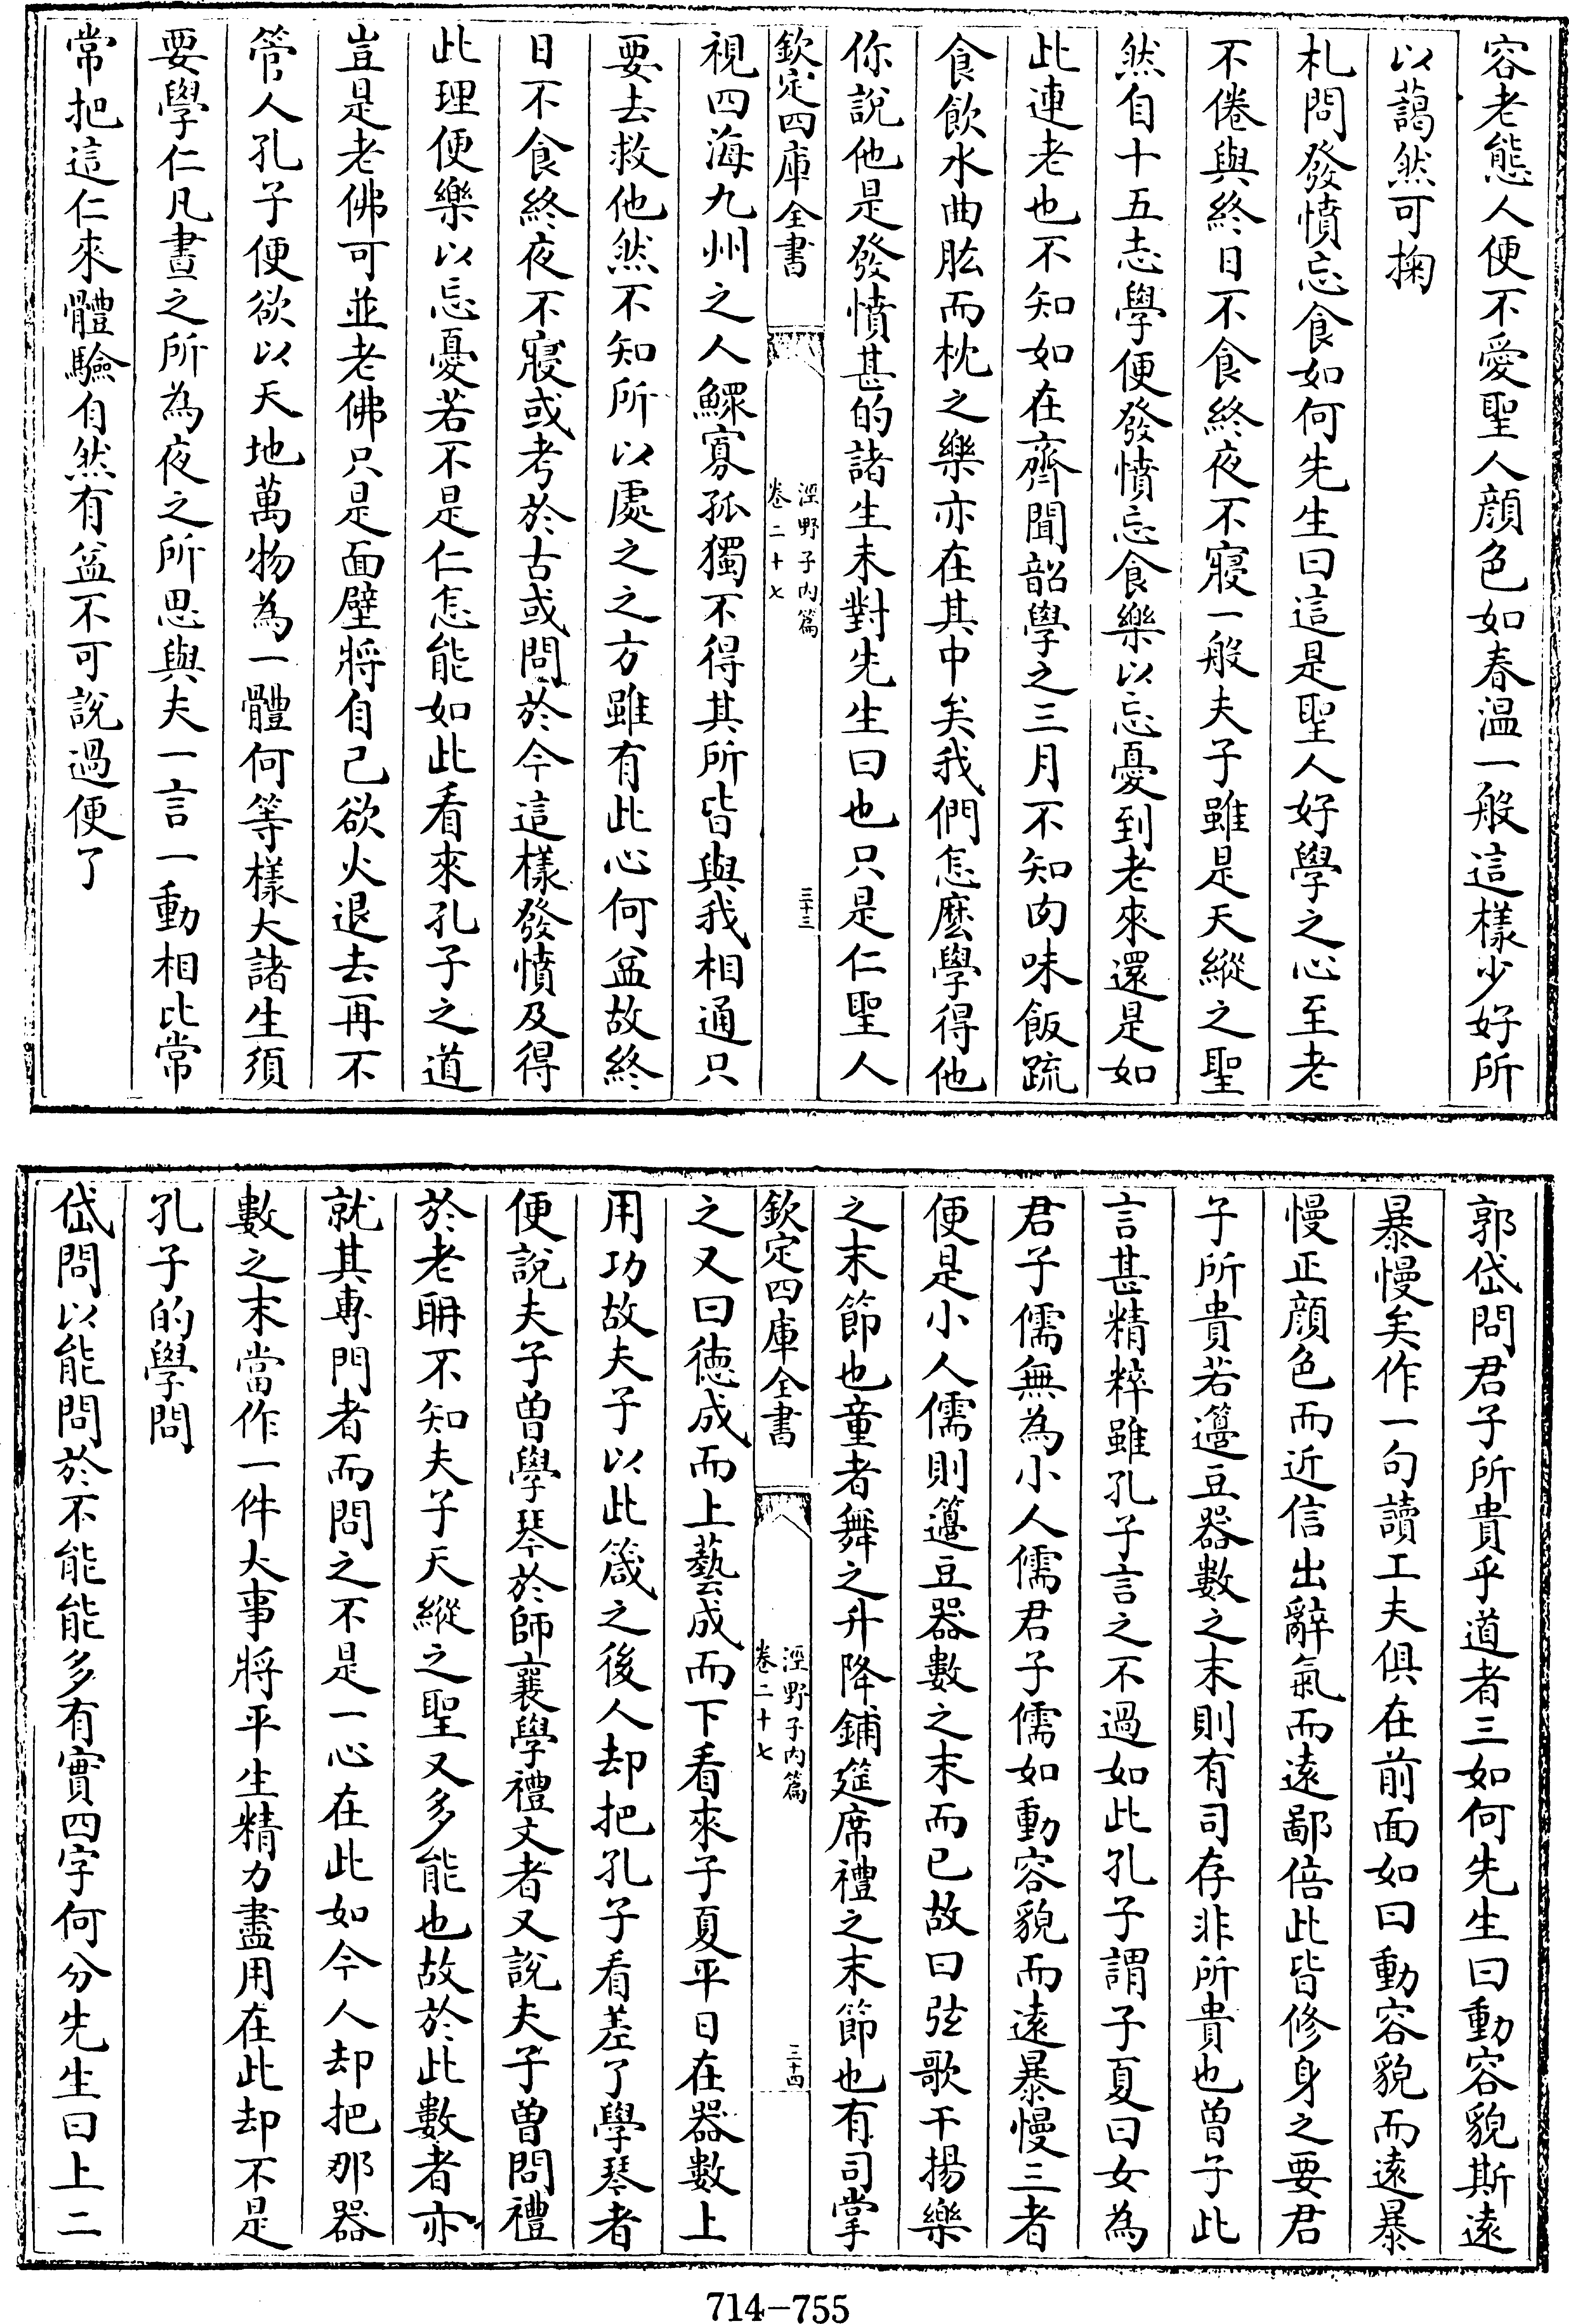 容老態人便不愛聖人顔色如春溫一般這樣少好所
以藹然可掬
札問發憤忘食如何先生曰這是聖人好學之心至老
不倦與終日不食終夜不寢一般夫子雖是天縱之聖
然自十五志學便發憤忘食樂以忘憂到老來還是如
此連老也不知如在齊聞韶學之三月不知肉味飯疏
食飲水曲肱而枕之樂亦在其中矣我們怎麽學得他
你說他是發憤甚的諸生未對先生曰也只是仁聖人
欽定四庫全書
涇野子内篇
卷二十七
三十三
視四海九州之人鰥寡孤獨不得其所皆與我相通只
要去救他然不知所以處之之方雖有此心何益故終
日不食終夜不寢或考於古或問於今這樣發憤及得
此理便樂以忘憂若不是仁怎能如此看來孔子之道
豈是老佛可並老佛只是面壁將自己欲火退去再不
管人孔子便欲以天地萬物為一體何等樣大諸生須
要學仁凡晝之所為夜之所思與夫一言一動相比常
常把這仁來體驗自然有益不可說過便了
郭岱問君子所貴乎道者三如何先生曰動容貌斯遠
暴慢矣作一句讀工夫俱在前面如曰動容貌而遠暴
慢正顔色而近信出辭氣而遠鄙倍此皆修身之要君
子所貴若籩豆器數之末則有司存非所貴也曾子此
言甚精粹雖孔子言之不過如此孔子謂子夏曰女為
君子儒無為小人儒君子儒如動容貌而遠暴慢三者
便是小人儒則籩豆器數之末而已故曰弦歌干揚樂
之末節也童者舞之升降鋪筵席禮之末節也有司掌
欽定四庫全書
涇野子内篇
卷二十七
三十四
之又曰德成而上藝成而下看來子夏平日在器數上
用功故夫子以此箴之後人却把孔子看差了學琴者
便說夫子曾學琴於師襄學禮文者又說夫子曾問禮
於老聃不知夫子天縱之聖又多能也故於此數者亦
就其專門者而問之不是一心在此如今人却把那器
數之末當作一件大事將平生精力盡用在此却不是
孔子的學問
岱問以能問於不能能多有實四字何分先生曰上二
714-755